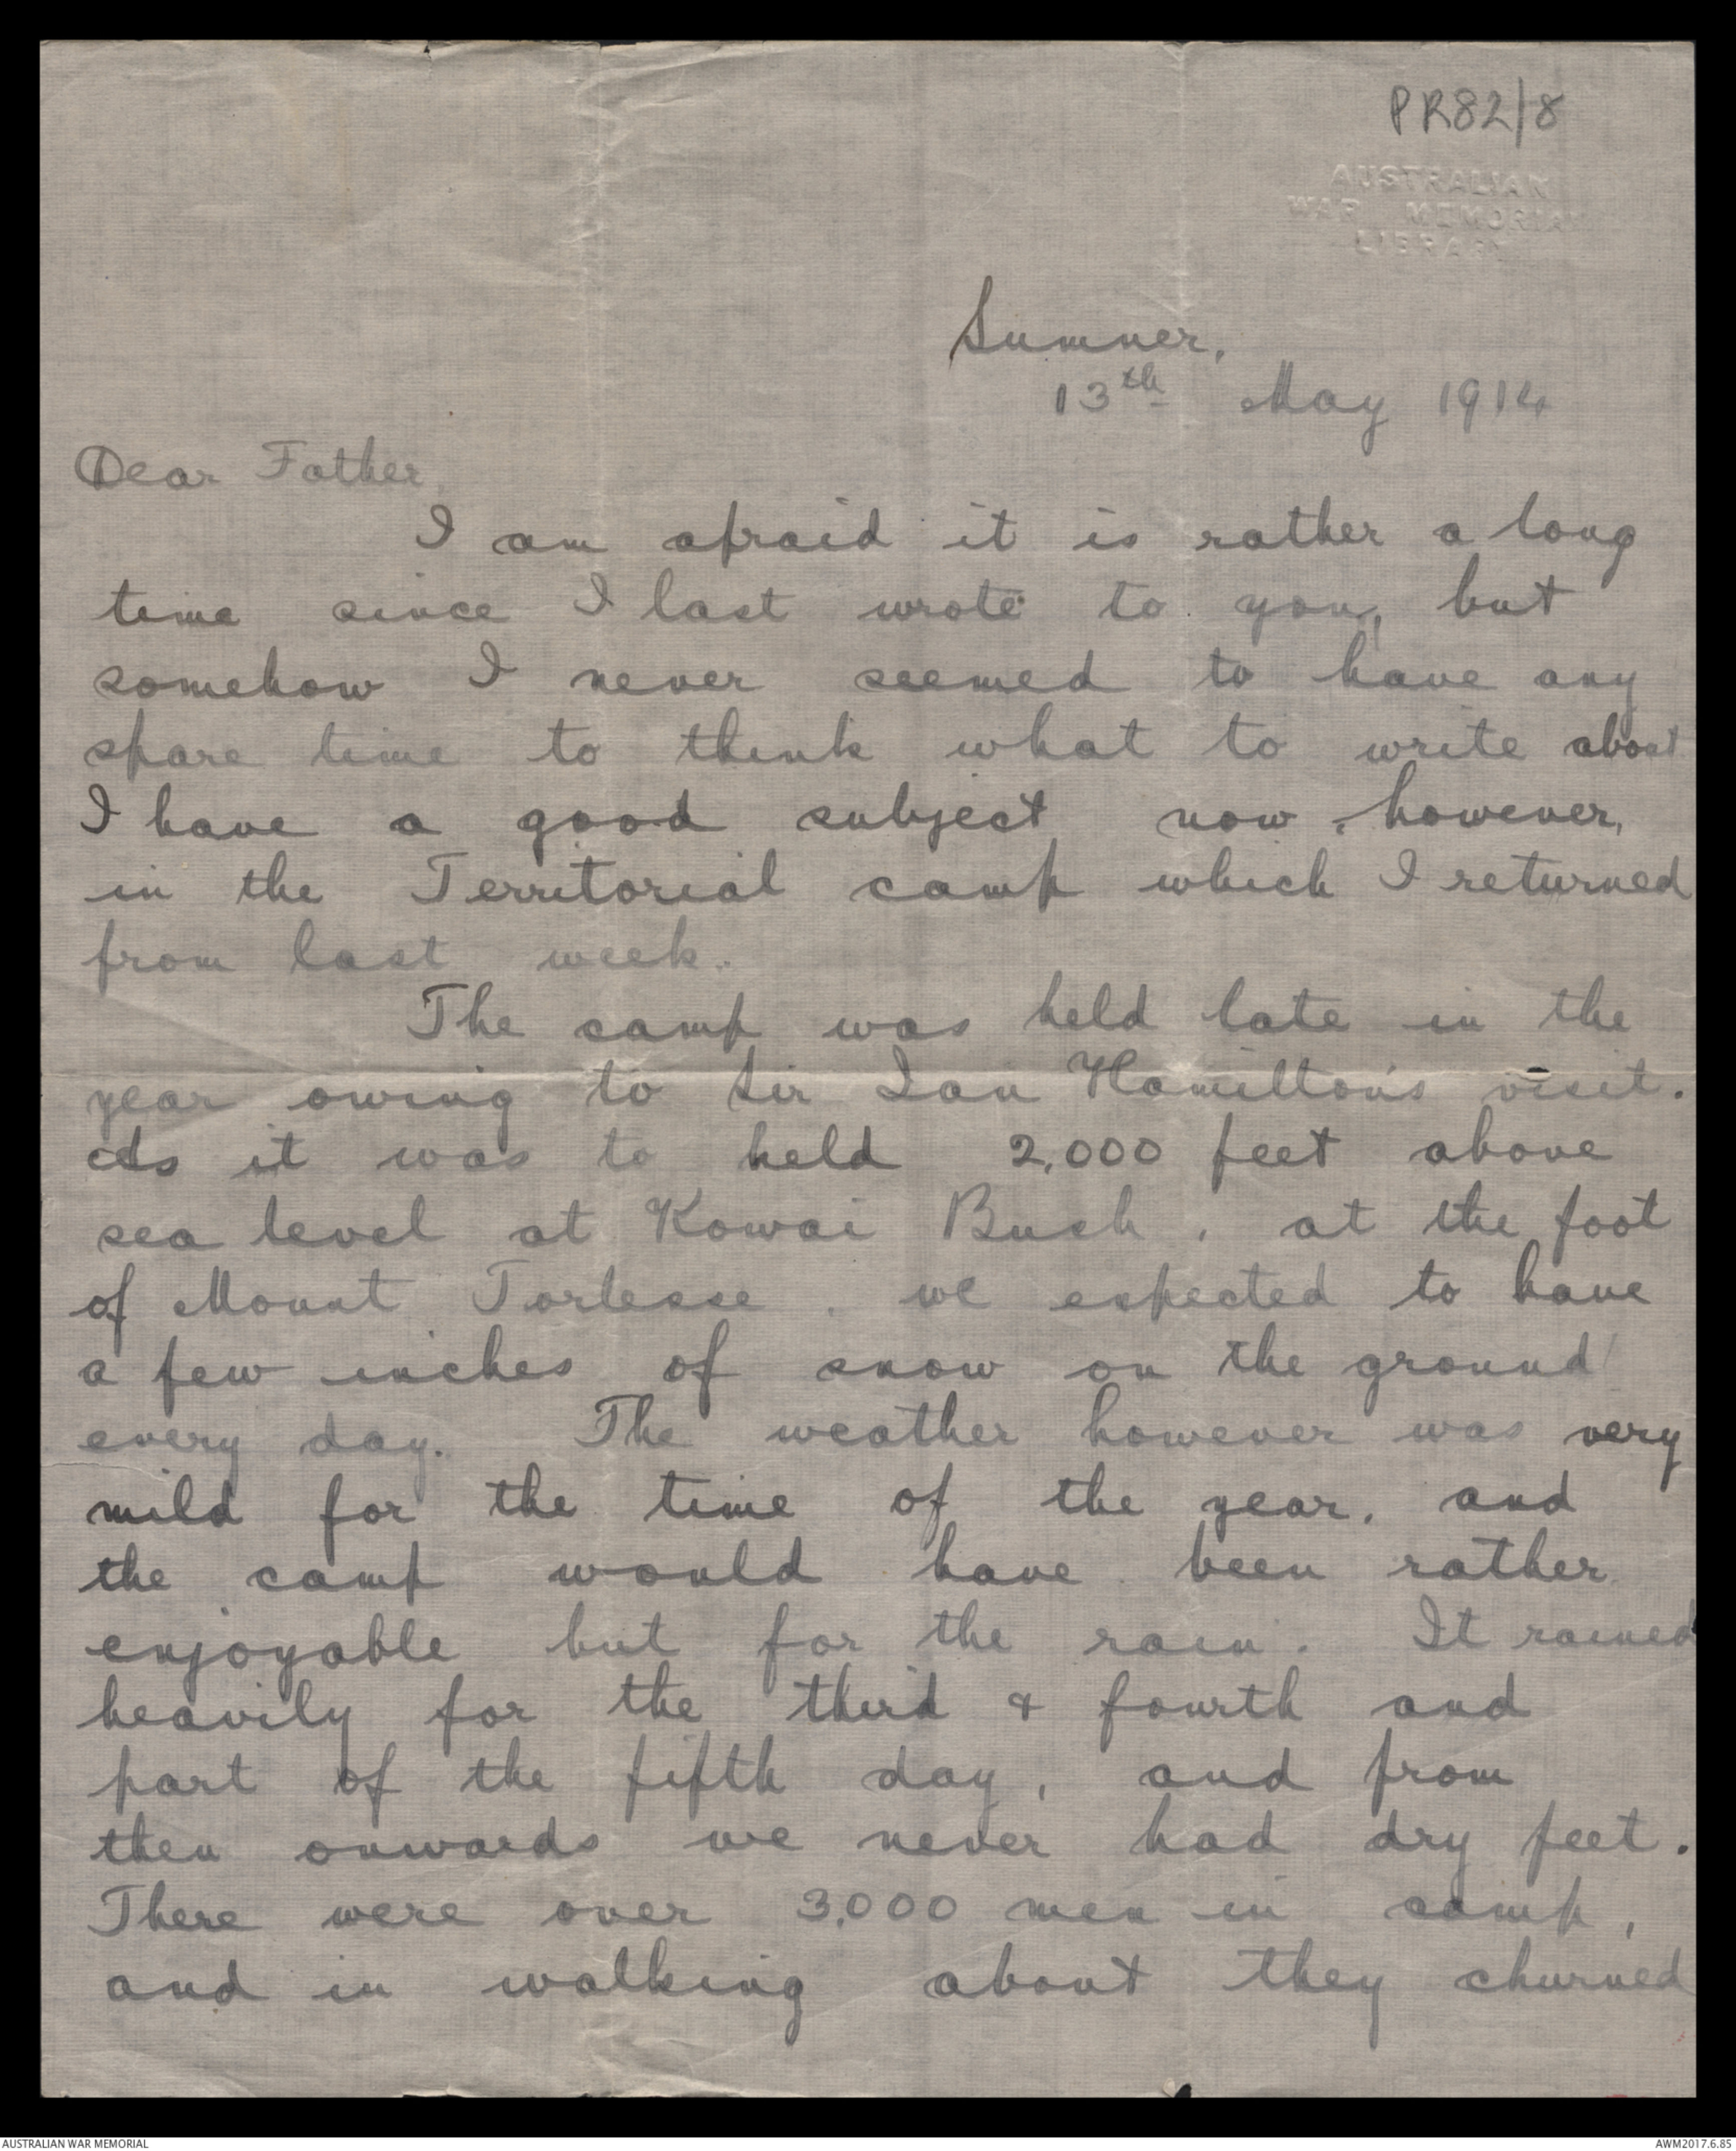 PR82/8
AUSTRALIAN
WAR MEMORIAL
LIBRARY
Sumner,
13th May 1914
Dear Father,
I am afraid it is rather a long
time since I last wrote to you, but
somehow I never seemed to have any
spare time to think what to write about
I have a good subject now, however,
in the Territorial camp which I returned
from last week.
The camp was held late in the
year owing to Sir Ian Hamilton's visit.
As it was to held 2,000 feet above
sea level at Kowai Bush, at the foot
of Mount Torlesse, we expected to have
a few inches of snow on the ground
every day. The weather however was very
mild for the time of the year, and
the camp would have been rather
enjoyable but for the rain. It rained
heavily for the third & fourth and
part of the fifth day, and from
then onwards we never had dry feet.
There were over 3,000 men in camp,
and in walking about they churned
AUSTRALIAN WAR MEMORIAL
AWM2017.6.85